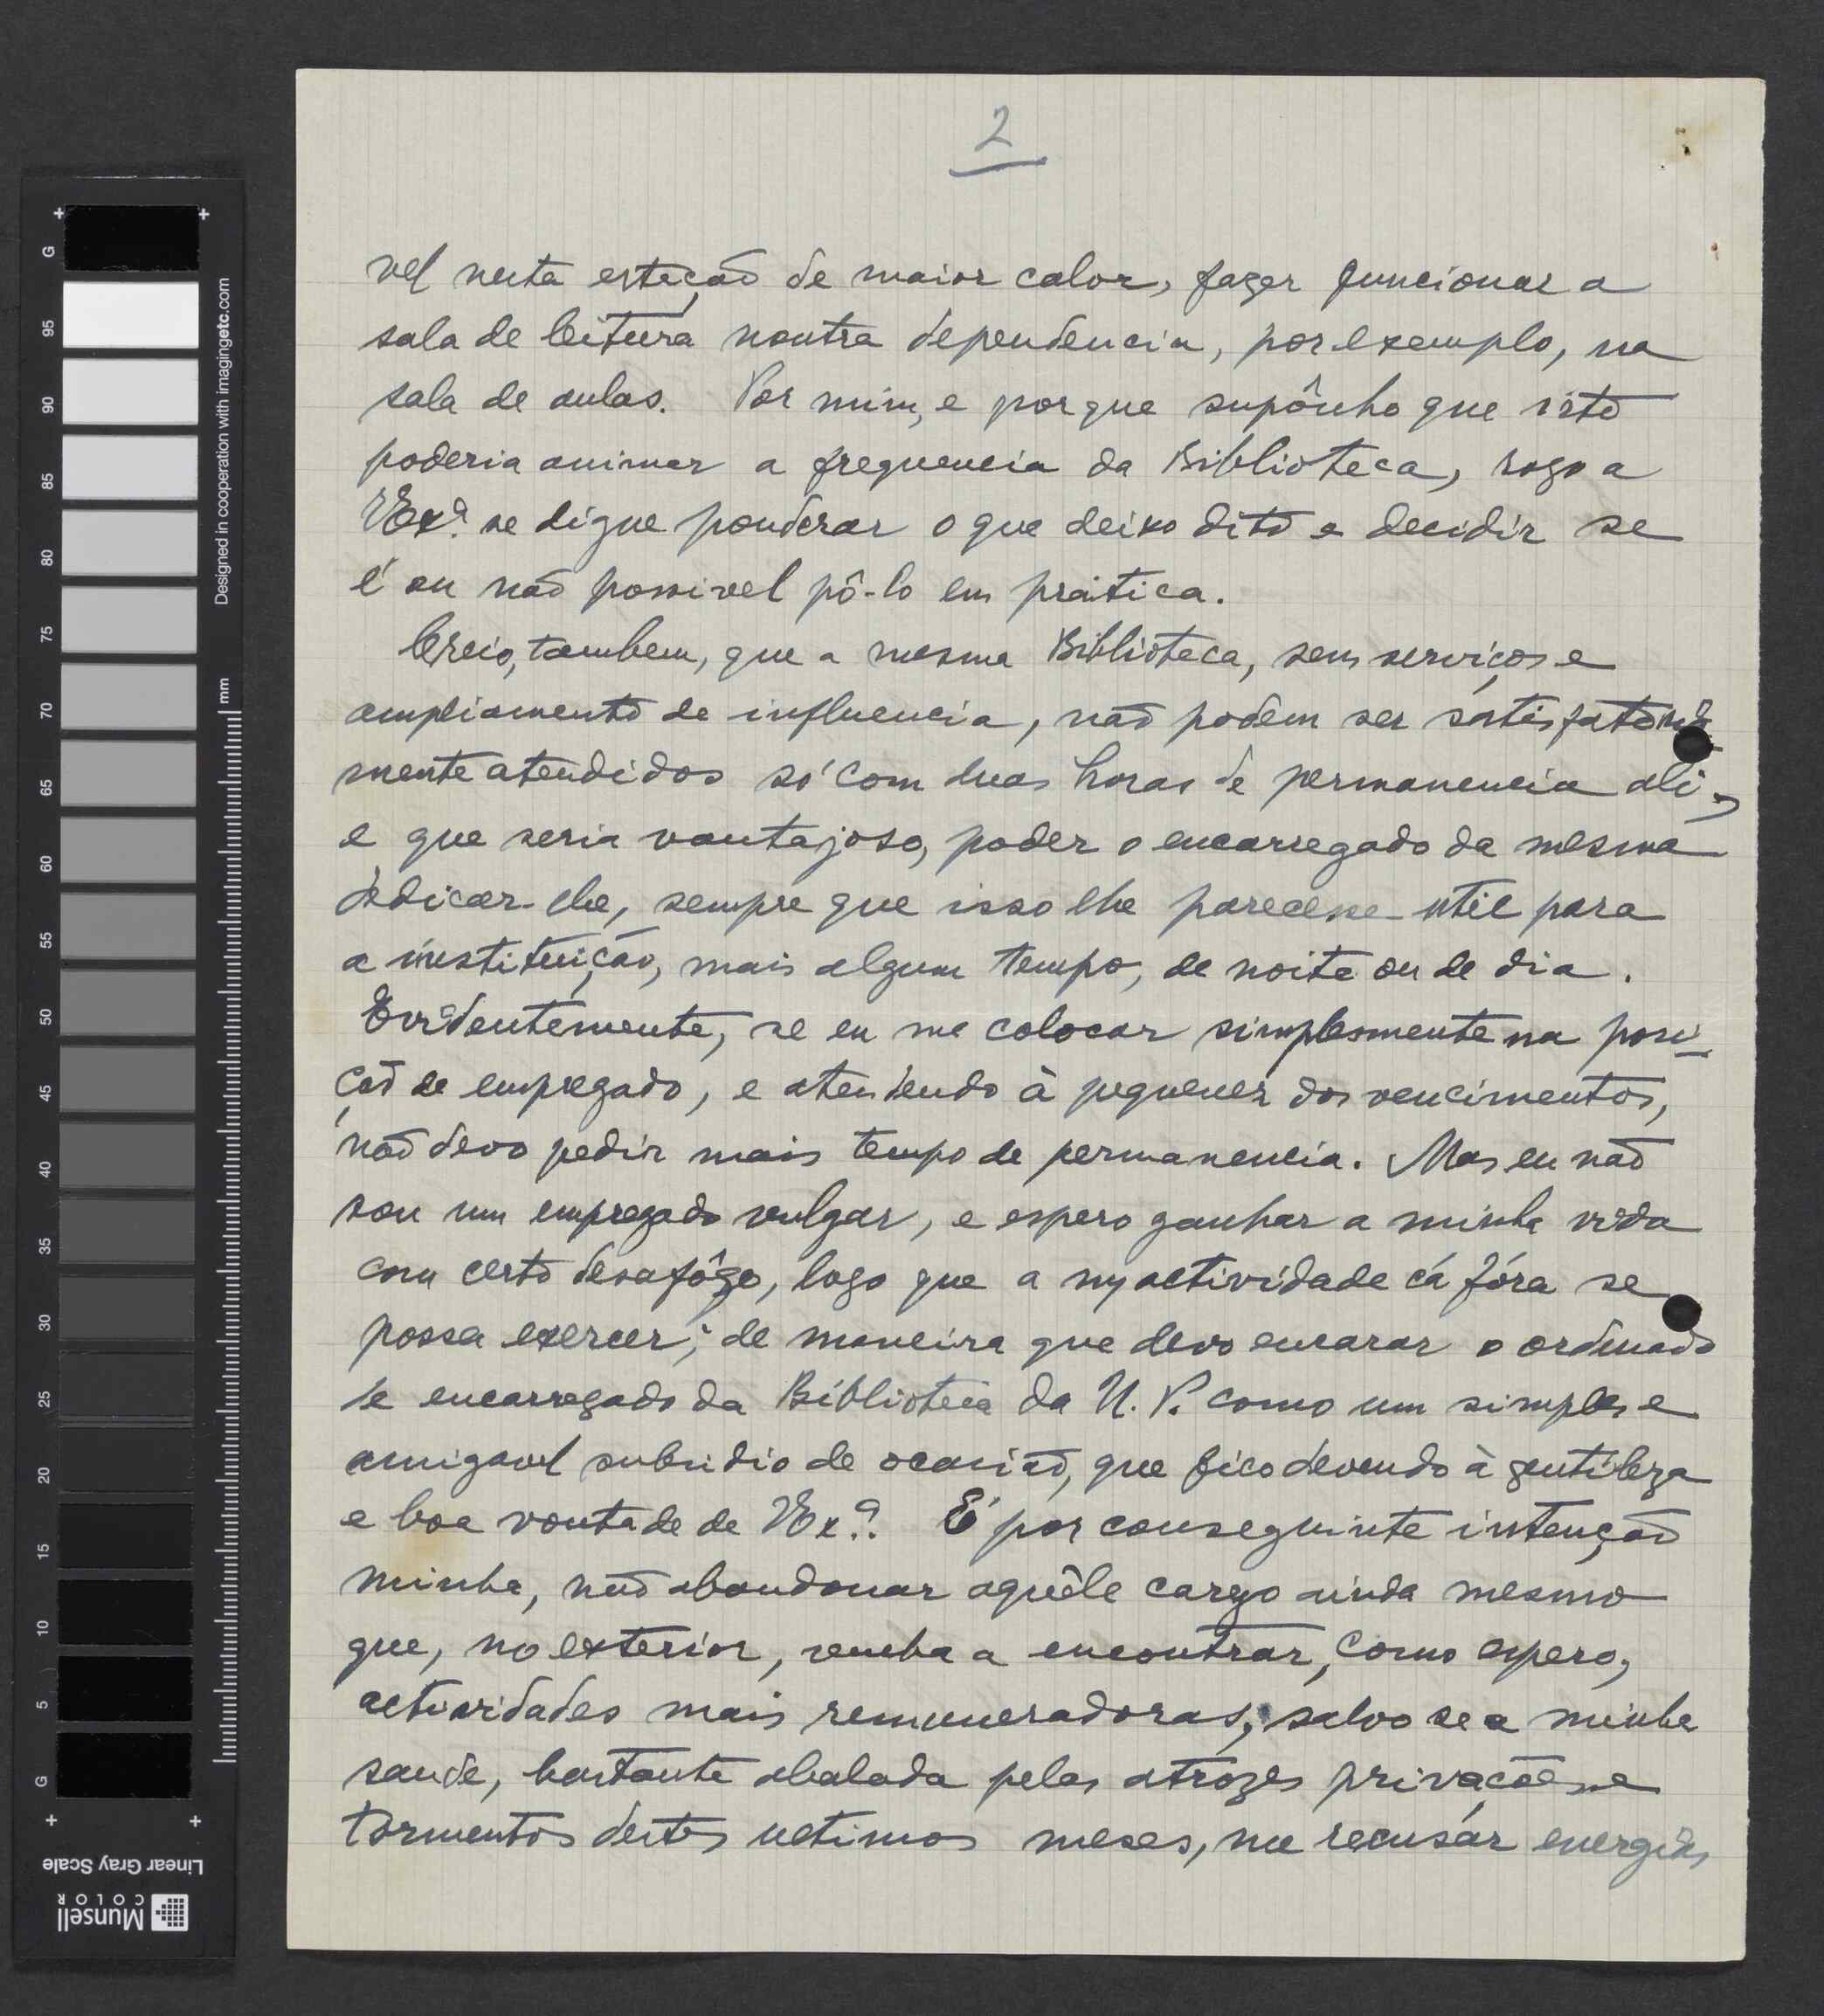 2
vel nesta estação de maior calor, fazer funcionar a
sala de leitura noutra dependencia, por exemplo, na
sala de aulas. Por mim, e porque supônho que isto
poderia animar a frequencia da Biblioteca, rogo a
VExª. se digne ponderar o que deixo dito e decidir se
é ou não possivel pô-lo em prática.
Creio, tambem, que a mesma Biblioteca, seus serviços e
ampliamento de influencia, não podem ser satisfatória
mente atendidos só com duas horas de permanencia ali,
e que seria vantajoso, poder o encarregado da mesma
dedicar-lhe, sempre que isso lhe parecesse util para
a instituição, mais algum tempo, de noite ou de dia.
Evidentemente, se eu me colocar simplesmente na posi-
ção de empregado, e atendendo à pequenez dos vencimentos,
não devo pedir mais tempo de permanencia. Mas eu não
sou um empregado vulgar, e espero ganhar a minha vida
com certo desafôgo, logo que a m/ actividade cá fóra se
possa exercer; de maneira que devo encarar o ordenado
de encarregado da Biblioteca da U. P. como um simples e
amigavel subsidio de ocasião, que fico devendo à gentileza
e boa vontade de VExª. É por conseguinte intenção
minha, não abandonar aquêle cargo ainda mesmo
que, no exterior, venha a encontrar, como espero,
actividades mais remuneradoras, salvo se a minha
saude, bastante abalada pelas atrozes privações e
tormentos destes ultimos meses, me recusár energias
G
95
90
85
80
75
70
65
60
55
50
45
40
35
30
25
20
15
10
5
G
Designed in cooperation with imagingetc.com
mm
Linear Gray Scale
Munsell
COLOR